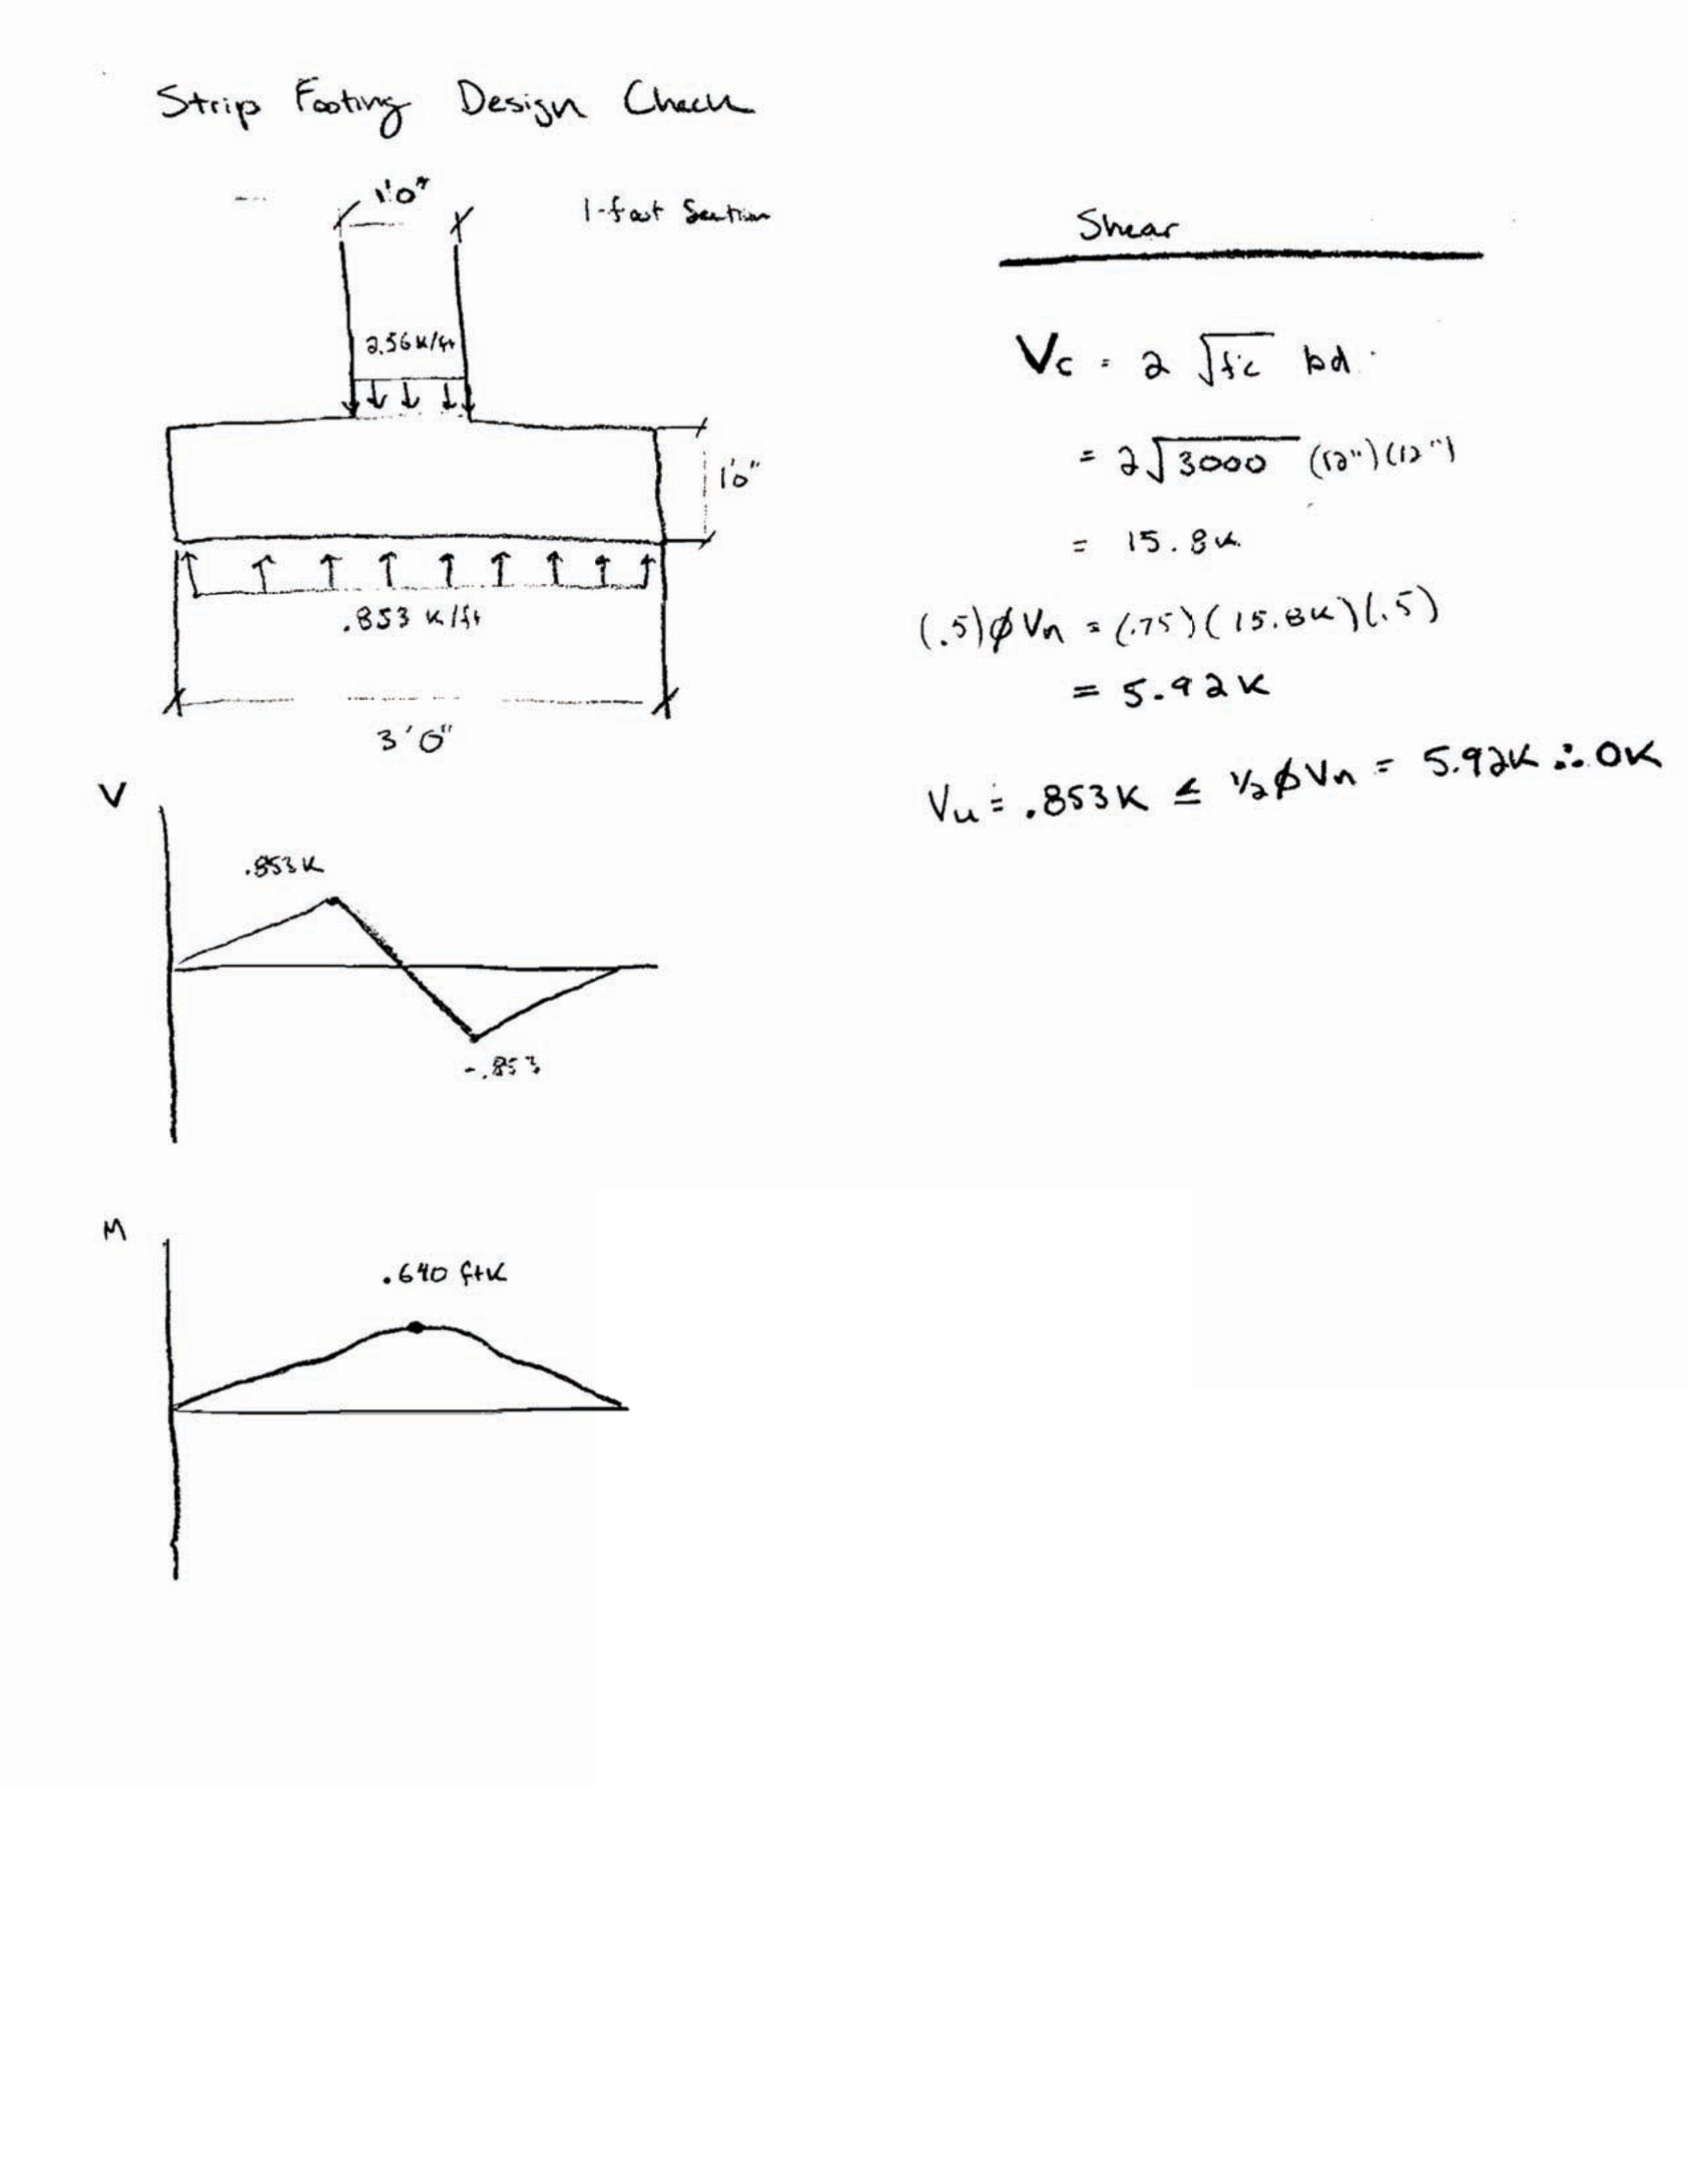 Strip Footing Design Check
1'0"
1-foot Section
2.56 k/ft
1'0"
.853 k/ft
3'0"
V
.853k
-.853
M
.640 ftk
Shear
Vc = 2 √f'c bd
= 2√3000 (12")(12")
= 15.8k
(.5)ϕVn = (.75)(15.8k)(.5)
= 5.92k
Vu = .853k ≤ 1/2ϕVn = 5.92k ∴ OK